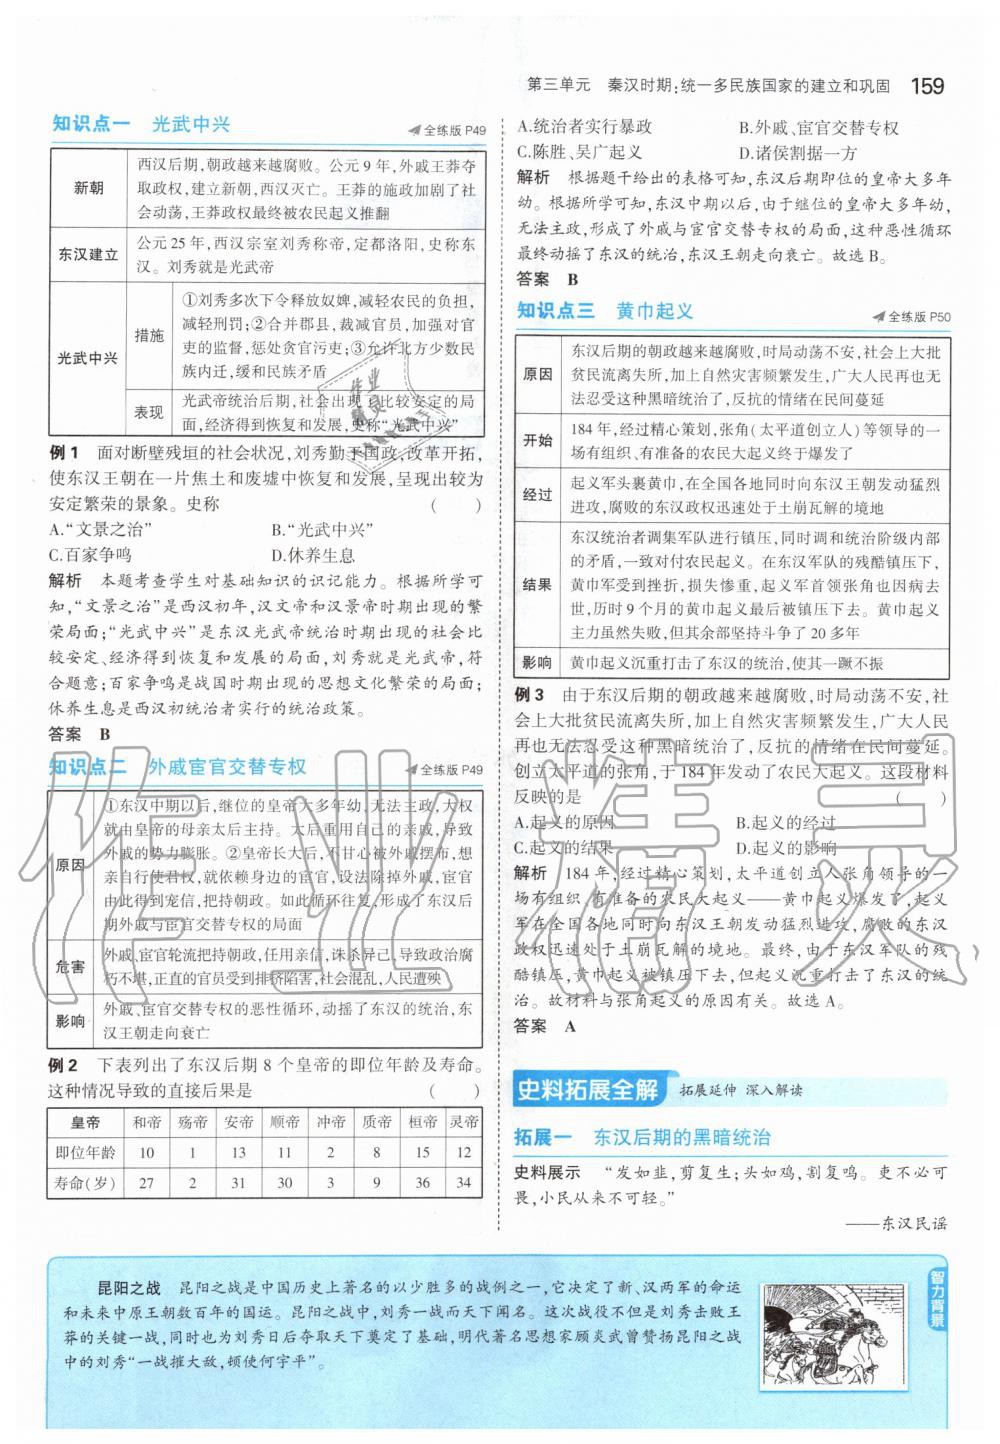 第三单元 秦汉时期:统一多民族国家的建立和巩固 159
知识点一 光武中兴 全练版 P49
新朝
西汉后期,朝政越来越腐败。公元 9 年,外戚王莽夺
取政权,建立新朝,西汉灭亡。王莽的施政加剧了社
会动荡,王莽政权最终被农民起义推翻
东汉建立
公元 25 年,西汉宗室刘秀称帝,定都洛阳,史称东
汉。刘秀就是光武帝
光武中兴
措施
①刘秀多次下令释放奴婢,减轻农民的负担,
减轻刑罚;②合并郡县,裁减官员,加强对官
吏的监督,惩处贪官污吏;③允许北方少数民
族内迁,缓和民族矛盾
表现
光武帝统治后期,社会出现了比较安定的局
面,经济得到恢复和发展,史称“光武中兴”
例 1 面对断壁残垣的社会状况,刘秀勤于国政,改革开拓,
使东汉王朝在一片焦土和废墟中恢复和发展,呈现出较为
安定繁荣的景象。史称 ( )
A.“文景之治” B.“光武中兴”
C.百家争鸣 D.休养生息
解析 本题考查学生对基础知识的识记能力。根据所学可
知,“文景之治”是西汉初年,汉文帝和汉景帝时期出现的繁
荣局面;“光武中兴”是东汉光武帝统治时期出现的社会比
较安定、经济得到恢复和发展的局面,刘秀就是光武帝,符
合题意;百家争鸣是战国时期出现的思想文化繁荣的局面;
休养生息是西汉初统治者实行的统治政策。
答案 B
知识点二 外戚宦官交替专权 全练版 P49
原因
①东汉中期以后,继位的皇帝大多年幼,无法主政,大权
就由皇帝的母亲太后主持。太后重用自己的亲戚,导致
外戚的势力膨胀。②皇帝长大后,不甘心被外戚摆布,想
亲自行使君权,就依赖身边的宦官,设法除掉外戚,宦官
由此得到宠信,把持朝政。如此循环往复,形成了东汉后
期外戚与宦官交替专权的局面
危害
外戚、宦官轮流把持朝政,任用亲信,诛杀异己,导致政治腐
朽不堪,正直的官员受到排挤陷害,社会混乱,人民遭殃
影响
外戚、宦官交替专权的恶性循环,动摇了东汉的统治,东
汉王朝走向衰亡
例 2 下表列出了东汉后期 8 个皇帝的即位年龄及寿命。
这种情况导致的直接后果是 ( )
皇帝 和帝 殇帝 安帝 顺帝 冲帝 质帝 桓帝 灵帝
即位年龄 10 1 13 11 2 8 15 12
寿命(岁) 27 2 31 30 3 9 36 34
A.统治者实行暴政 B.外戚、宦官交替专权
C.陈胜、吴广起义 D.诸侯割据一方
解析 根据题干给出的表格可知,东汉后期即位的皇帝大多年
幼。根据所学可知,东汉中期以后,由于继位的皇帝大多年幼,
无法主政,形成了外戚与宦官交替专权的局面,这种恶性循环
最终动摇了东汉的统治,东汉王朝走向衰亡。故选 B。
答案 B
知识点三 黄巾起义 全练版 P50
原因
东汉后期的朝政越来越腐败,时局动荡不安,社会上大批
贫民流离失所,加上自然灾害频繁发生,广大人民再也无
法忍受这种黑暗统治了,反抗的情绪在民间蔓延
开始
184 年,经过精心策划,张角(太平道创立人)等领导的一
场有组织、有准备的农民大起义终于爆发了
经过
起义军头裹黄巾,在全国各地同时向东汉王朝发动猛烈
进攻,腐败的东汉政权迅速处于土崩瓦解的境地
结果
东汉统治者调集军队进行镇压,同时调和统治阶级内部
的矛盾,一致对付农民起义。在东汉军队的残酷镇压下,
黄巾军受到挫折,损失惨重,起义军首领张角也因病去
世,历时 9 个月的黄巾起义最后被镇压下去。黄巾起义
主力虽然失败,但其余部坚持斗争了 20 多年
影响
黄巾起义沉重打击了东汉的统治,使其一蹶不振
例 3 由于东汉后期的朝政越来越腐败,时局动荡不安,社
会上大批贫民流离失所,加上自然灾害频繁发生,广大人民
再也无法忍受这种黑暗统治了,反抗的情绪在民间蔓延。
创立太平道的张角,于 184 年发动了农民大起义。这段材料
反映的是 ( )
A.起义的原因 B.起义的经过
C.起义的结果 D.起义的影响
解析 184 年,经过精心策划,太平道创立人张角领导的一
场有组织、有准备的农民大起义——黄巾起义爆发了,起义
军在全国各地同时向东汉王朝发动猛烈进攻,腐败的东汉
政权迅速处于土崩瓦解的境地。最终,由于东汉军队的残
酷镇压,黄巾起义被镇压下去,但起义沉重打击了东汉的统
治。故材料与张角起义的原因有关。故选 A。
答案 A
史料拓展全解 拓展延伸 深入解读
拓展一 东汉后期的黑暗统治
史料展示 “发如韭,剪复生;头如鸡,割复鸣。吏不必可
畏,小民从来不可轻。”
——东汉民谣
昆阳之战 昆阳之战是中国历史上著名的以少胜多的战例之一,它决定了新、汉两军的命运
和未来中原王朝数百年的国运。昆阳之战中,刘秀一战而天下闻名。这次战役不但是刘秀击败王
莽的关键一战,同时也为刘秀日后夺取天下奠定了基础,明代著名思想家顾炎武曾赞扬昆阳之战
中的刘秀“一战摧大敌,顿使何宇平”。
智力背景
作业精灵
作业精灵